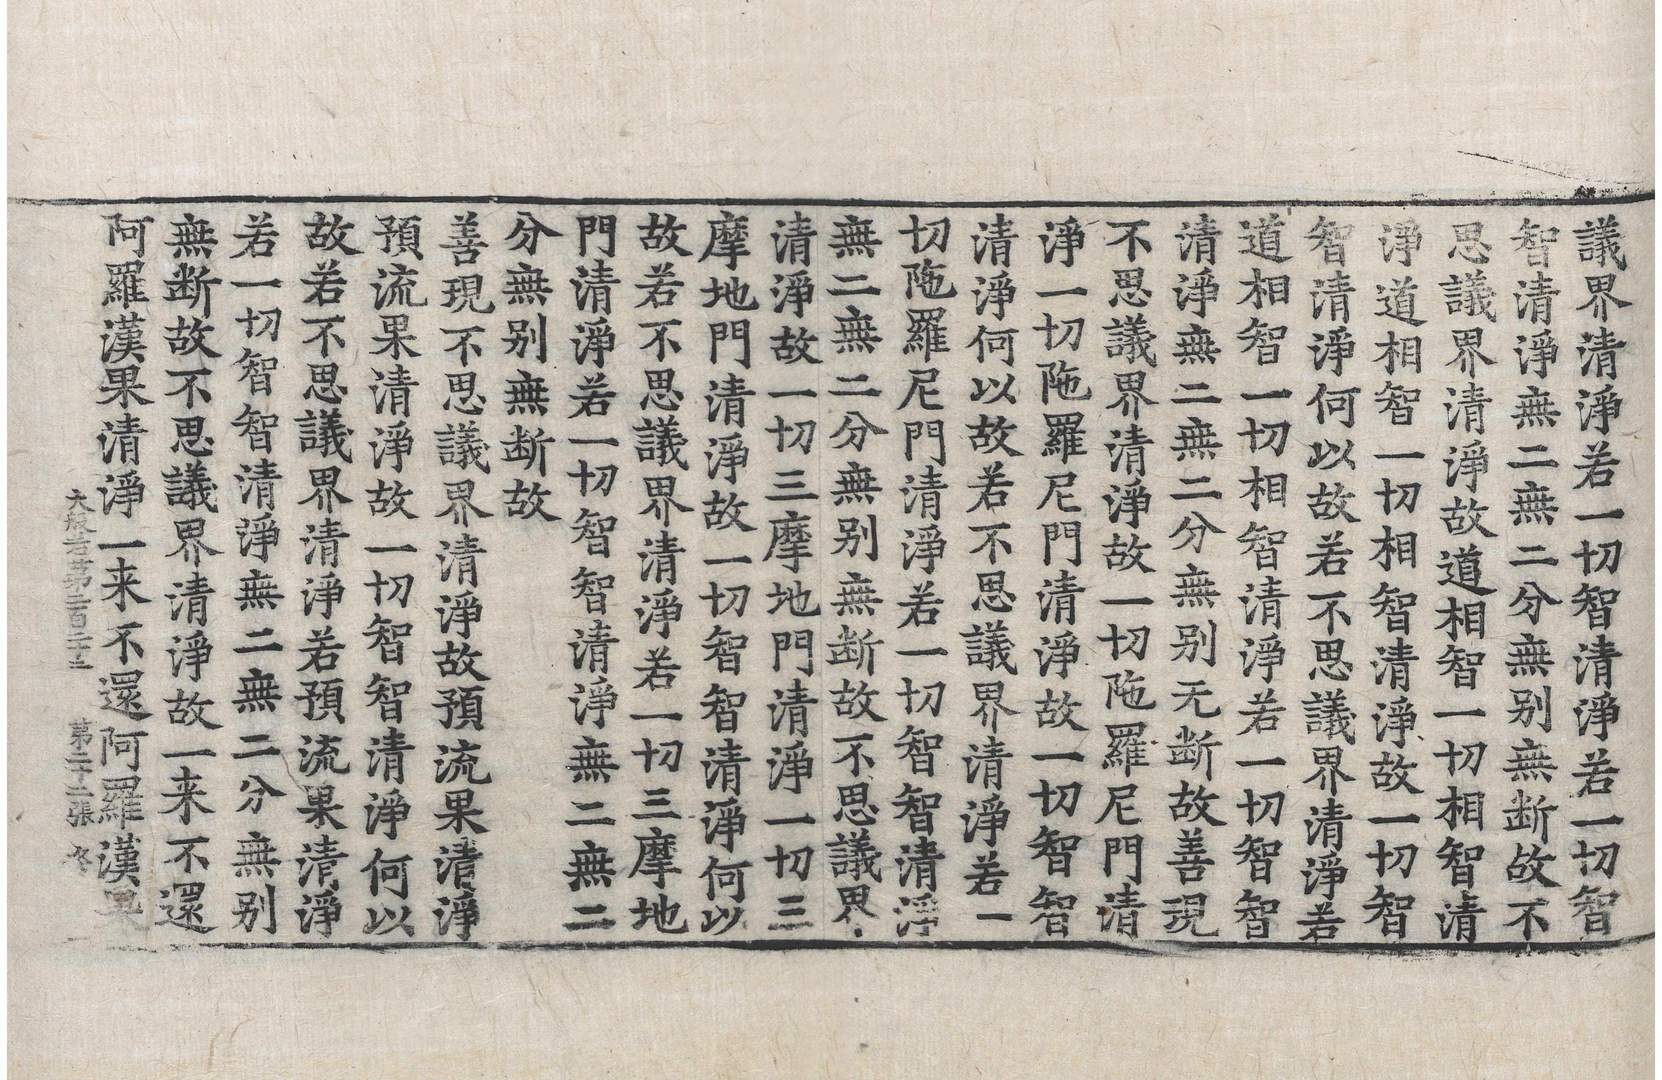 議界清淨若一切智清淨若一切智
智清淨無二無二分無別無断故不
思議界清淨故道相智一切相智清
淨道相智一切相智清淨故一切智
智清淨何以故若不思議界清淨若
道相智一切相智清淨若一切智智
清淨無二無二分無別无断故善現
不思議界清淨故一切陁羅尼門清
淨一切陁羅尼門清淨故一切智智
清淨何以故若不思議界清淨若一
切陁羅尼門清淨若一切智智清淨
無二無二分無別無断故不思議界
清淨故一切三摩地門清淨一切三
摩地門清淨故一切智智清淨何以
故若不思議界清淨若一切三摩地
門清淨若一切智智清淨無二無二
分無別無断故
善現不思議界清淨故預流果清淨
預流果清淨故一切智智清淨何以
故若不思議界清淨若預流果清淨
若一切智智清淨無二無二分無別
無断故不思議界清淨故一来不還
阿羅漢果清淨一来不還阿羅漢果
大般若第二百二十二 第二十二張 冬